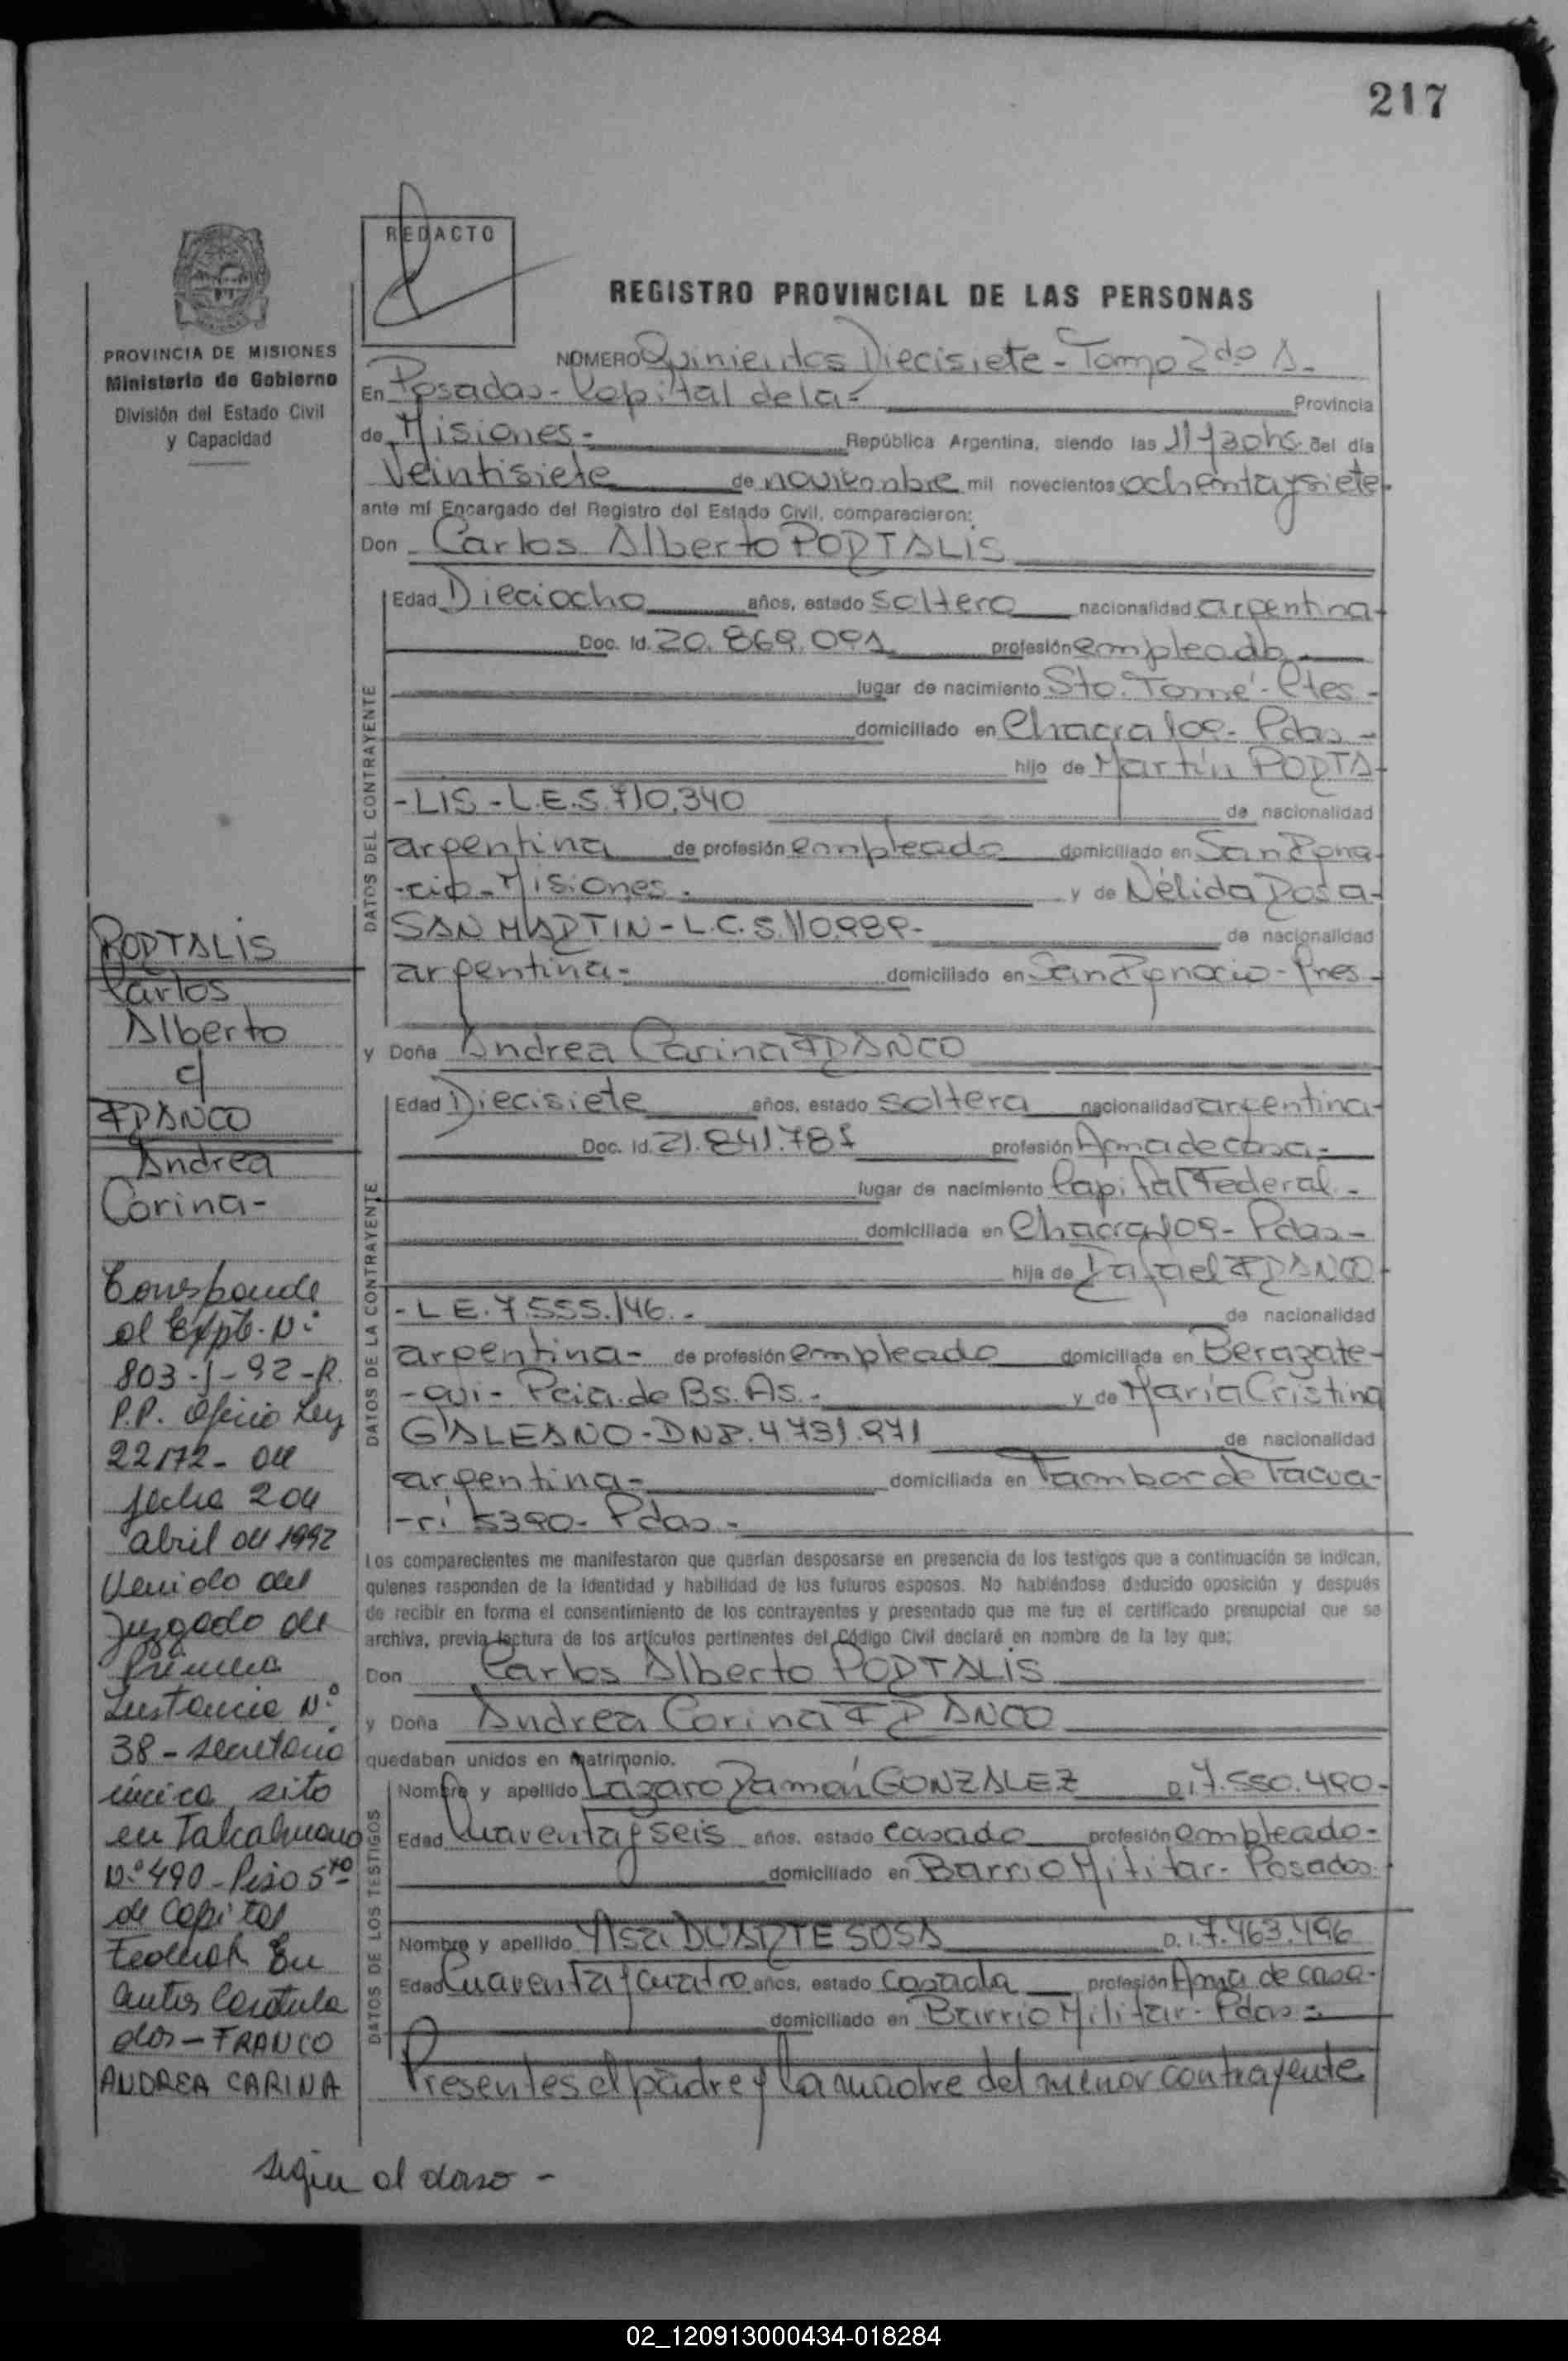 217
REDACTO
REGISTRO PROVINCIAL DE LAS PERSONAS
PROVINCIA DE MISIONES
Ministerio de Gobierno
División del Estado Civil
y Capacidad
NÚMERO Quinientos Diecisiete - Tomo 2do A.-
En Posadas - Capital de la - Provincia
de Misiones - República Argentina, siendo las 11 y 30 hs. del día
Veintisiete de noviembre mil novecientos ochenta y siete
ante mí Encargado del Registro del Estado Civil, comparecieron:
Don Carlos Alberto PORTALIS
DATOS DEL CONTRAYENTE
Edad Dieciocho años, estado soltero nacionalidad argentina-
Doc. Id. 20.869.091 profesión empleado
lugar de nacimiento Sto. Tomé - Ctes -
domiciliado en Chacra - Pdas -
hijo de Martín PORTA
-LIS - L.E. 5.710.340 de nacionalidad
argentina de profesión empleado domiciliado en San Igna-
-cio - Misiones - y de Nélida Rosa -
SAN MARTIN - L.C. 5.110.989- de nacionalidad
argentina- domiciliado en San Ignacio - Mnes -
y Doña Andrea Carina FRANCO
DATOS DE LA CONTRAYENTE
Edad Diecisiete años, estado soltera nacionalidad argentina-
Doc. Id. 21.841.781 profesión Ama de casa-
lugar de nacimiento Capital Federal -
domiciliada en Chacra 109 - Pdas -
hija de Rafael FRANCO
- L E. 7.555.146.- de nacionalidad
argentina- de profesión empleado domiciliada en Berazate-
-gui - Pcia. de Bs. As.- y de María Cristina
GALEANO - DNI. 4.731.971 de nacionalidad
argentina- domiciliada en Tambor de Tacua-
-rí 5390 - Pdas -
Los comparecientes me manifestaron que querían desposarse en presencia de los testigos que a continuación se indican,
quienes responden de la identidad y habilidad de los futuros esposos. No habiéndose deducido oposición y después
de recibir en forma el consentimiento de los contrayentes y presentado que me fue el certificado prenupcial que se
archiva, previa lectura de los artículos pertinentes del Código Civil declaré en nombre de la ley que;
Don Carlos Alberto PORTALIS
y Doña Andrea Carina FRANCO
quedaban unidos en matrimonio.
DATOS DE LOS TESTIGOS
Nombre y apellido Lázaro Ramón GONZALEZ D.I. 7.550.490-
Edad Cuarenta y seis años, estado casado profesión empleado-
domiciliado en Barrio Militar - Posadas
Nombre y apellido DUARTE SOSA D.I. 7.463.496
Edad Cuarenta y cuatro años, estado casada profesión Ama de casa-
domiciliado en Barrio Militar - Pdas -
Presentes el padre y la madre del menor contrayente
PORTALIS
Carlos
Alberto
c/
FRANCO
Andrea
Carina-
Corresponde
al Expte. N:
803-1-92-R.
P.P. Oficio Ley
22172- de
fecha 2 de
abril de 1992
Venido del
Juzgado de
Primera
Instancia N°
38 - secretario
única, sito
en Talcahuano
N° 490 - Piso 5to
de Capital
Federal. En
autos Caratula
dos - FRANCO
ANDREA CARINA
sigue al dorso -
02_120913000434-018284